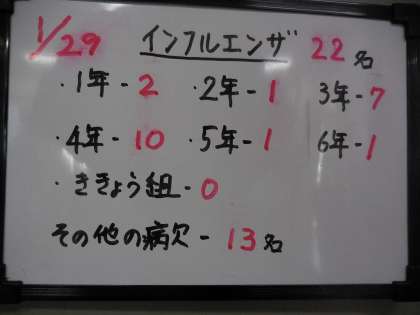 1/29 インフルエンザ 22名
・1年-2 ・2年-1 3年-7
・4年-10 ・5年-1 6年-1
・ききょう組-0
その他の病欠-13名